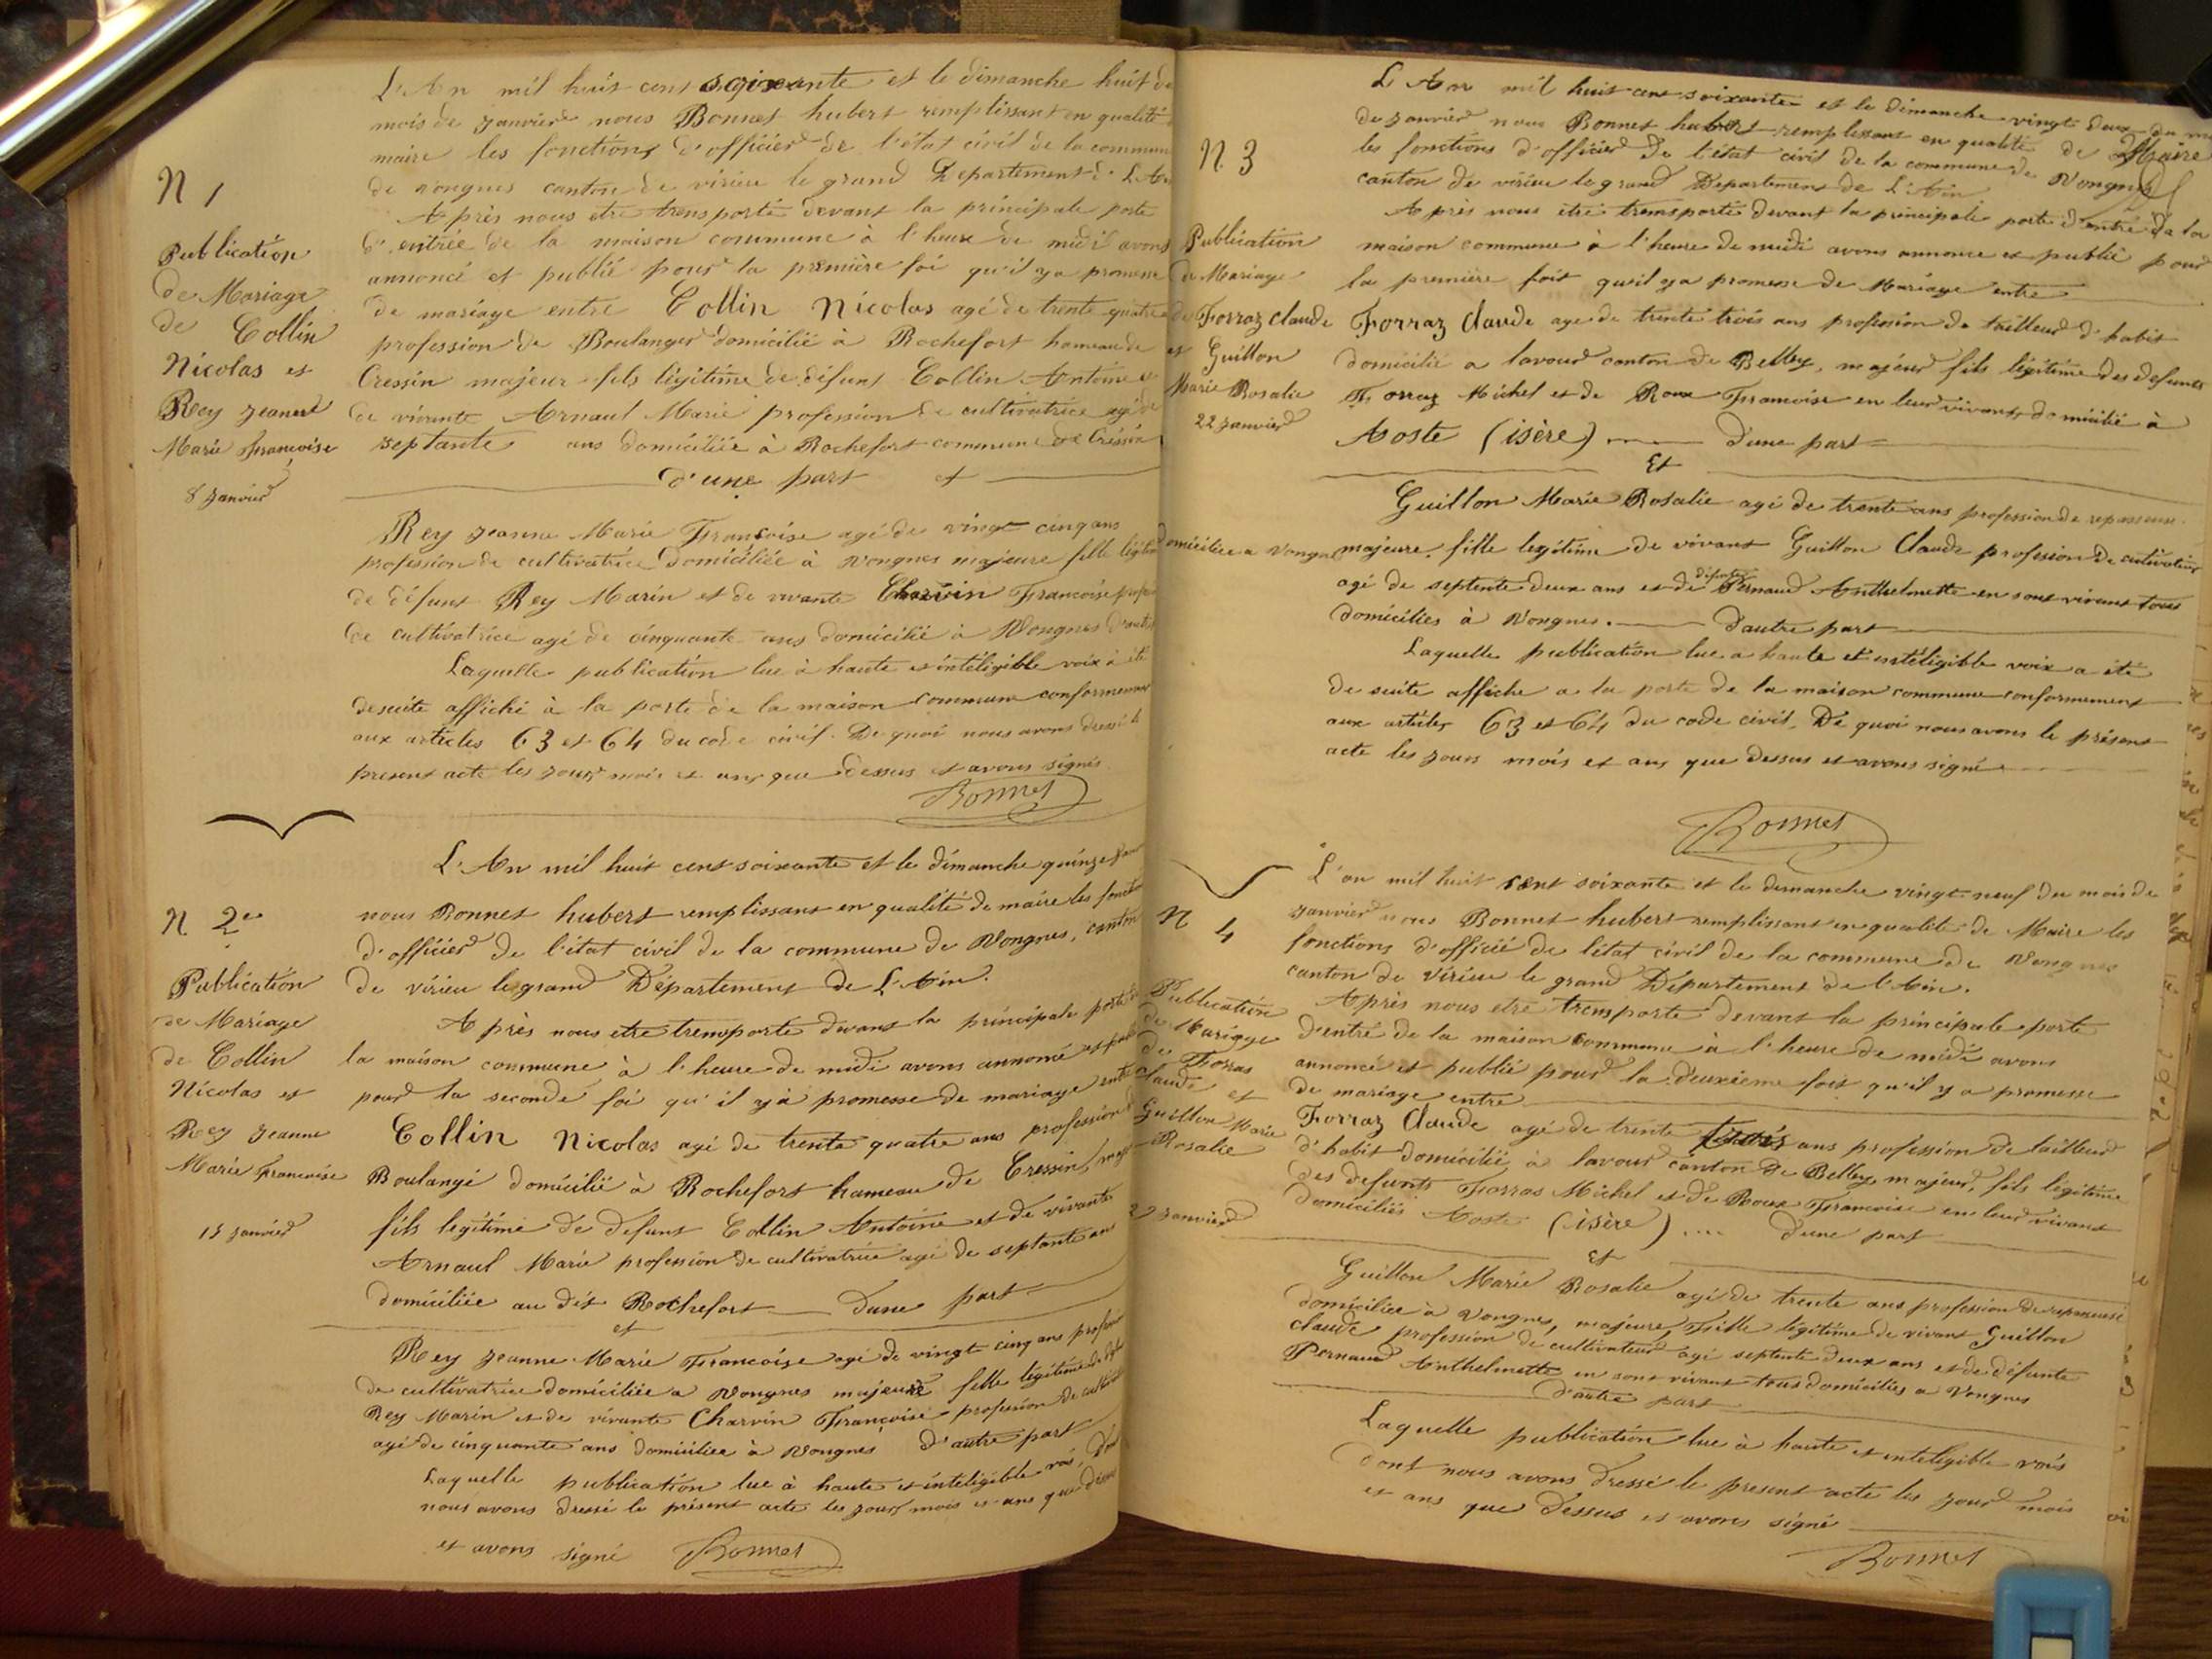 L'An mil huit cent soixante et le dimanche huit du
mois de janvier nous Bonnet hubert remplissant en qualité
maire les fonctions d'officier de l'état civil de la commune
de vongnes canton de virieu le grand Departement de L'Ain
N 1
Après nous etre transporté devant la principale porte
d'entrée de la maison commune à l'heure de midi avons
annoncé et publié pour la première foi qu'il y a promesse
de mariage entre Collin Nicolas agé de trente quatre
profession de Boulanger domicilié à Rochefort hameau de
Cressin majeur fils légitime de défunt Collin Antoine et
de vivante Arnaud Marie profession de cultivatrice agé de
septante ans domiciliée à Rochefort commune de Cressin
d'une part et
Publication
de Mariage
de Collin
Nicolas et
Rey jeanne
Marie francoise
8 janvier
Rey jeanne Marie Francoise agé de vingt cinq ans
profession de cultivatrice domiciliée à vongnes majeure fille légitime
de défunt Rey Marin et de vivante Charvin Francoise
de cultivatrice agé de cinquante ans domicilié à Vongnes d'autre
Laquelle publication lue à haute et intéligible voix à été
de suite affiché à la porte de la maison commune conformement
aux articles 63 et 64 du code civil. De quoi nous avons dressé le
present acte les jour mois et ans que dessus et avons signés
Bonnet
L'An mil huit cent soixante et le dimanche quinze
N 2e
nous Bonnet hubert remplissant en qualité de maire les fonctions
d'officier de l'état civil de la commune de Vongnes, canton
de virieu le grand Département de L'Ain.
Après nous etre transporté devant la principale porte de
la maison commune à l'heure de midi avons annoncé et publié
pour la seconde foi qu'il y à promesse de mariage entre
Collin Nicolas agé de trente quatre ans profession
Boulangé domicilié à Rochefort hameau de Cressin
fils legitime de defunt Collin Antoine et de vivante
Arnaul Marie profession de cultivatrice agé de septante ans
domiciliée au dit Rochefort d'une part
et
Publication
de Mariage
de Collin
Nicolas et
Rey jeanne
Marie francoise
15 janvier
Rey jeanne Marie Francoise agé de vingt cinq ans profession
de cultivatrice domiciliée a vongnes majeure fille légitime de
Rey Marin et de vivante Charvin Françoise profession de
agé de cinquante ans domiciliée à vongnes d'autre part
Laquelle publication lue à haute et intéligible
nous avons dressé le présent acte les jour mois et ans que dessus
et avons signé Bonnet
L'An mil huit cent soixante et le dimanche vingt deux du
de janvier nous Bonnet hubert remplissant en qualité de Maire
les fonctions d'officier de l'état civil de la commune de Vongnes
canton de virieu le grand Departement de L'Ain
N 3
Après nous etre transporté devant la principale porte d'entré de la
maison commune à l'heure de midi avons annonce et publié pour
la première foit qu'il y a promesse de Mariage entre
Forraz Claude age de trente trois ans profession de tailleur d'habit
domicilié a lavour canton de Belley, majeur fils légitime des defunts
Forraz Michel et de Roux Francoise en leur vivant domicilié à
Aoste (isère) d'une part
Et
Publication
de Mariage
de Forraz Claude
et Guillon
Marie Rosalie
22 janvier
Guillon Marie Rosalie agé de trente ans profession de repasseuse
domiciliee a vongnes majeure fille legitime de vivant Guillon Claude profession de cultivateur
agé de septente deux ans et de défunte Pernaud Anthelmette en sont vivant tous
domiciliés à Vongnes. d'autre part
Laquelle publication lue a haute et intéligible voix a été
de suite affiche a la porte de la maison commune conformement
aux articles 63 et 64 du code civil. De quoi nous avons le présent
acte les jours mois et ans que dessus et avons signé
Bonnet
L'an mil huit cent soixante et le dimanche vingt neuf du mois de
janvier nous Bonnet hubert remplissant en qualité de Maire les
fonctions d'officié de l'état civil de la commune de Vongnes
canton de virieu le grand Département de l'Ain.
N 4
Après nous etre transporte devant la principale porte
d'entré de la maison commune à l'heure de midi avons
annoncé et publié pour la deuxieme fois qu'il y a promesse
de mariage entre
Forraz Claude agé de trente trois ans profession de tailleur
d'habit domicilié à lavour canton de Belley, majeur, fils légitime
des defunts Forras Michel et de Roux Francoise en leur vivant
domiciliés Aoste (isère) .... d'une part
Et
Publication
de Mariage
de Forras
Claude et
Guillon Marie
Rosalie
29 janvier
Guillon Marie Rosalie agé de trente ans profession de repasseuse
domiciliée à vongnes, majeure, Fille légitime de vivant Guillon
Claude profession de cultivateur agé septente deux ans et de défunte
Pernaud Anthelmette en sont vivant tous domiciliés a Vongnes
d'autre part
Laquelle publication lue à haute et inteligible vois
dont nous avons dressé le present acte les jour mois
et ans que dessus et avons signé
Bonnet